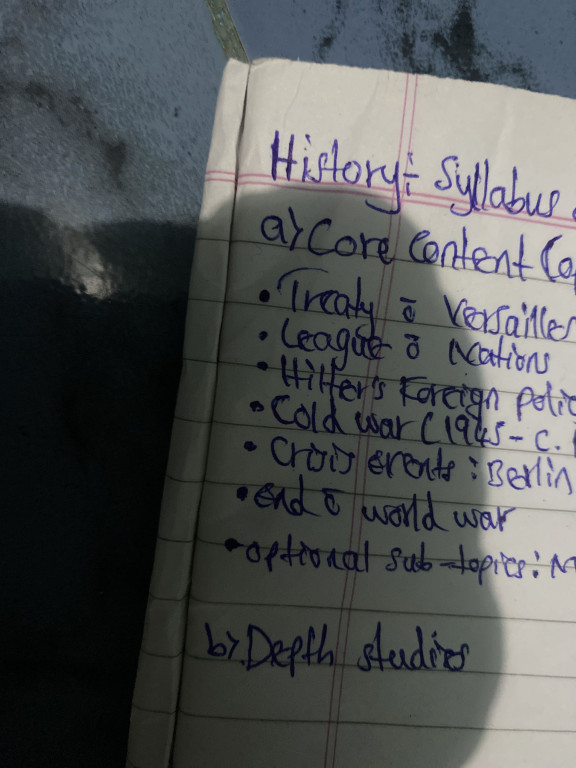 History: Syllabus
a) Core Content (
• Treaty ō Versailles
• League ō Nations
• Hitler's Foreign polic
• Cold war (1945 - C.
• Crisis events : Berlin
• end ō world war
• optional sub-topics:
b). Depth studies